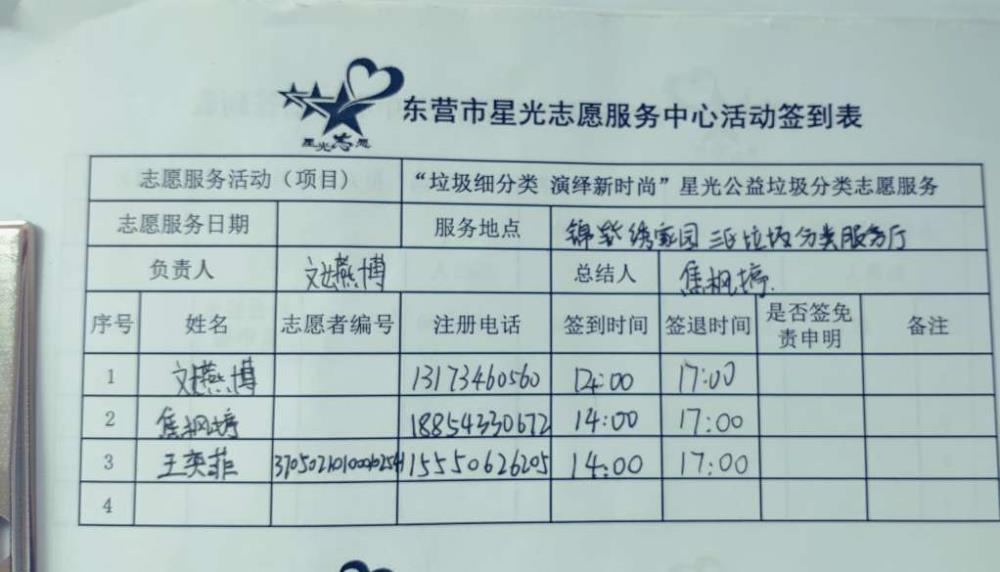 星光志愿
东营市星光志愿服务中心活动签到表
志愿服务活动（项目） “垃圾细分类 演绎新时尚”星光公益垃圾分类志愿服务
志愿服务日期 服务地点 锦绣家园三区垃圾分类服务厅
负责人 燕博 总结人 焦枫婷
序号 姓名 志愿者编号 注册电话 签到时间 签退时间 是否签免责申明 备注
1 燕博 13173460560 14:00 17:00
2 焦枫婷 18854330672 14:00 17:00
3 王奕菲 15550626205 14:00 17:00
4